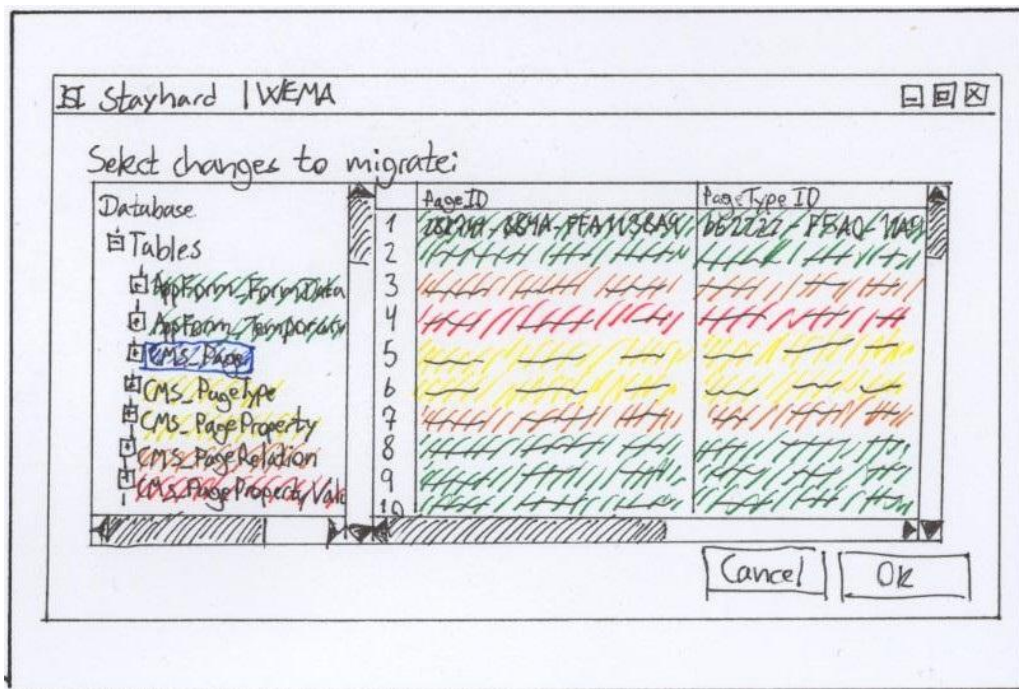 Stayhard | WEMA
Select changes to migrate:
Database
Tables
AppForm_FormData
AppForm_Temporary
CMS_Page
CMS_PageType
CMS_PageProperty
CMS_PageRelation
CMS_PagePropertyValu
PageID PageType ID
1
2
3
4
5
6
7
8
9
10
Cancel OK